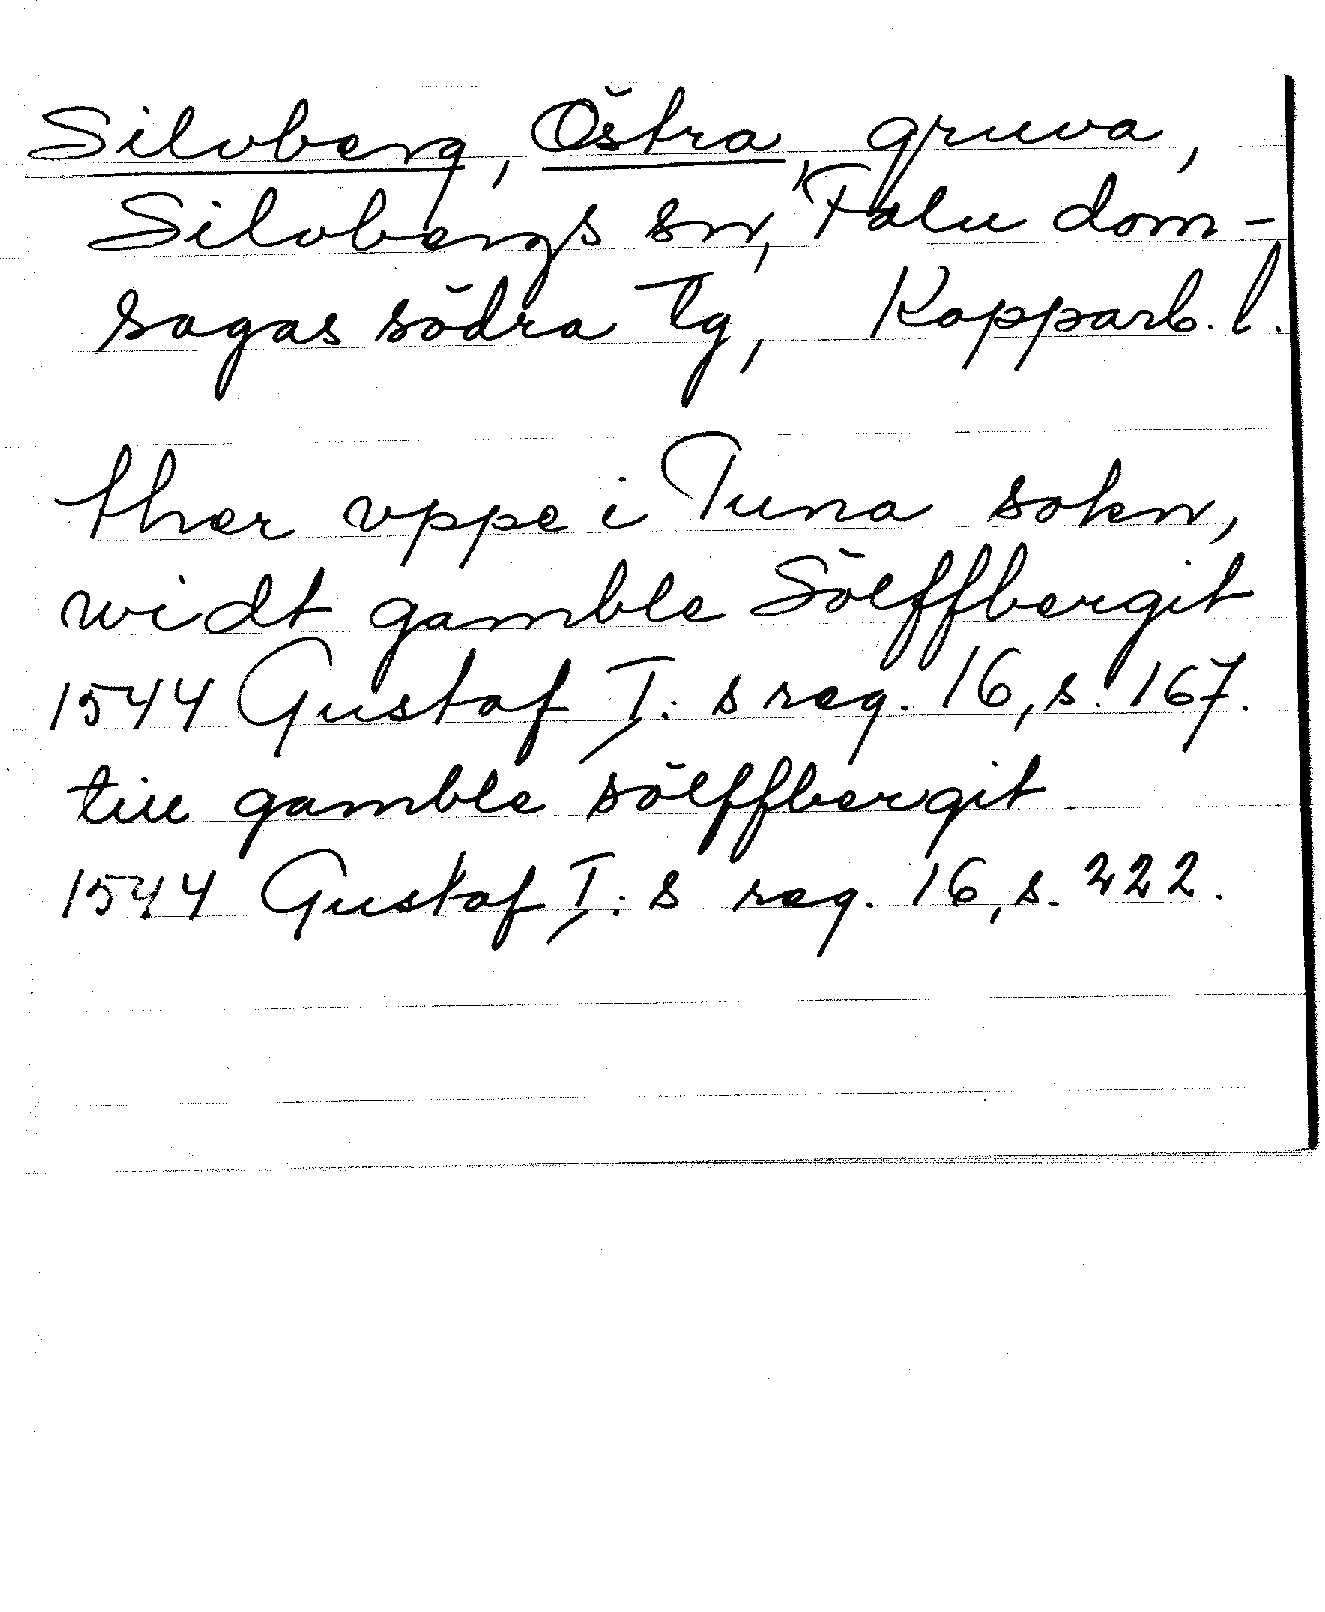 Silvberg, Östra, gruva,
Silvbergs sn, Falu dom-
sagas södra tg, Kopparb. l.
ther vppe i Tuna sokn,
widt gamble Sölffbergit
1544 Gustaf I:s reg. 16, s. 167.
till gamble sölffbergit
1544 Gustaf I:s reg. 16, s. 222.